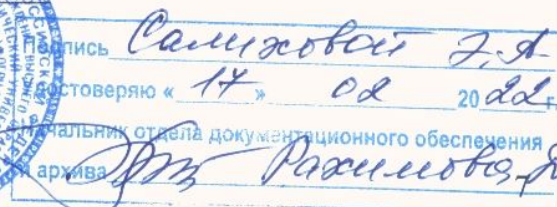 Подпись Салиховой Э.А
достоверяю « 17 » 02 2022 г.
начальник отдела документационного обеспечения
архива Рахимова